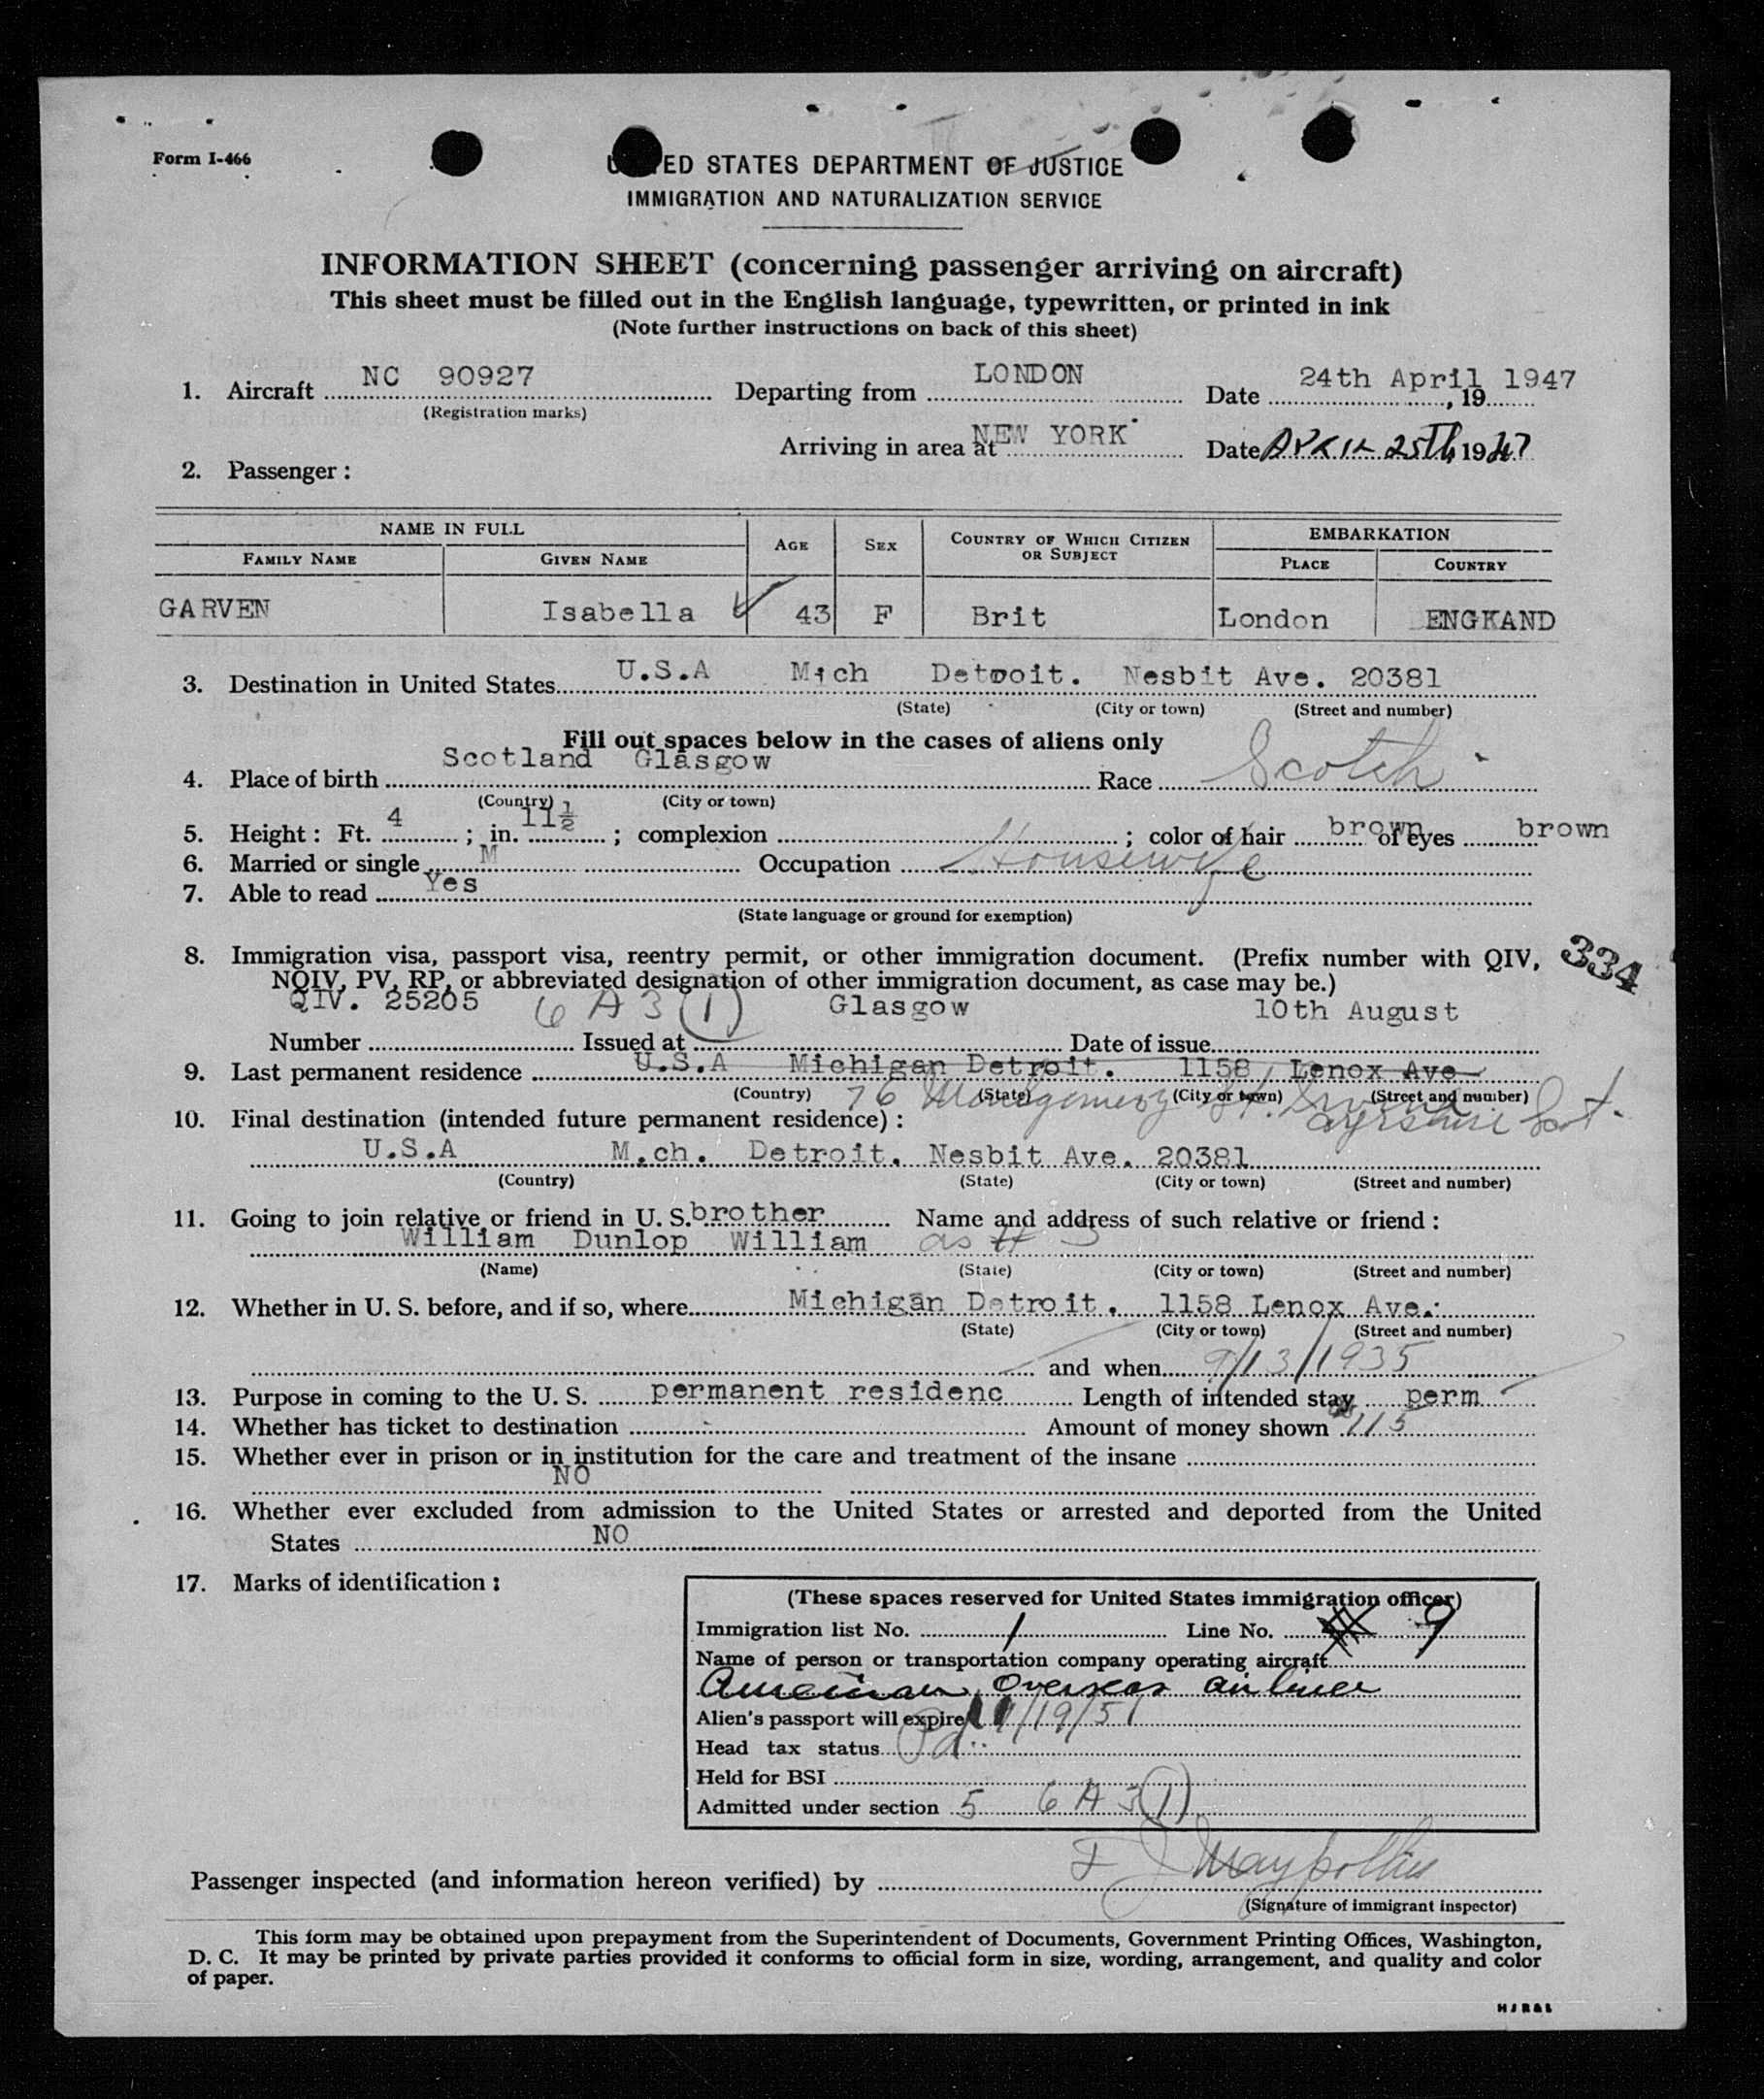 Form I-466
UNITED STATES DEPARTMENT OF JUSTICE
IMMIGRATION AND NATURALIZATION SERVICE
INFORMATION SHEET (concerning passenger arriving on aircraft)
This sheet must be filled out in the English language, typewritten, or printed in ink
(Note further instructions on back of this sheet)
1. Aircraft NC 90927 Departing from LONDON Date 24th April 1947, 19
(Registration marks)
Arriving in area at NEW YORK Date APRIL 25Th 1947
2. Passenger:
NAME IN FULL AGE SEX COUNTRY OF WHICH CITIZEN OR SUBJECT EMBARKATION
FAMILY NAME GIVEN NAME PLACE COUNTRY
GARVEN Isabella 43 F Brit London ENGKAND
3. Destination in United States U.S.A Mich Detwoit. Nesbit Ave. 20381
(State) (City or town) (Street and number)
Fill out spaces below in the cases of aliens only
4. Place of birth Scotland Glasgow Race Scotch
(Country) (City or town)
5. Height: Ft. 4; in. 11½; complexion; color of hair brown of eyes brown
6. Married or single M Occupation Housewife
7. Able to read Yes
(State language or ground for exemption)
8. Immigration visa, passport visa, reentry permit, or other immigration document. (Prefix number with QIV, 334
NQIV, PV, RP, or abbreviated designation of other immigration document, as case may be.)
QIV. 25205 6 A 3 (1) Glasgow 10th August
Number Issued at Date of issue
9. Last permanent residence U.S.A Michigan Detroit. 1158 Lenox Ave
(Country) (State) (City or town) (Street and number)
76 Montgomery St. Ayrshire Scot.
10. Final destination (intended future permanent residence):
U.S.A M.ch. Detroit. Nesbit Ave. 20381
(Country) (State) (City or town) (Street and number)
11. Going to join relative or friend in U. S. brother Name and address of such relative or friend:
William Dunlop William as # 3
(Name) (State) (City or town) (Street and number)
12. Whether in U. S. before, and if so, where Michigan Detroit. 1158 Lenox Ave.
(State) (City or town) (Street and number)
and when 9/13/1935
13. Purpose in coming to the U. S. permanent residenc Length of intended stay perm
14. Whether has ticket to destination Amount of money shown 115
15. Whether ever in prison or in institution for the care and treatment of the insane
NO
16. Whether ever excluded from admission to the United States or arrested and deported from the United
States NO
17. Marks of identification:
(These spaces reserved for United States immigration officer)
Immigration list No. 1 Line No. 9
Name of person or transportation company operating aircraft
American Overseas Airlines
Alien's passport will expire /19/51
Head tax status Pd
Held for BSI
Admitted under section 5 6 A 3 (1)
Passenger inspected (and information hereon verified) by
(Signature of immigrant inspector)
This form may be obtained upon prepayment from the Superintendent of Documents, Government Printing Offices, Washington,
D. C. It may be printed by private parties provided it conforms to official form in size, wording, arrangement, and quality and color
of paper.